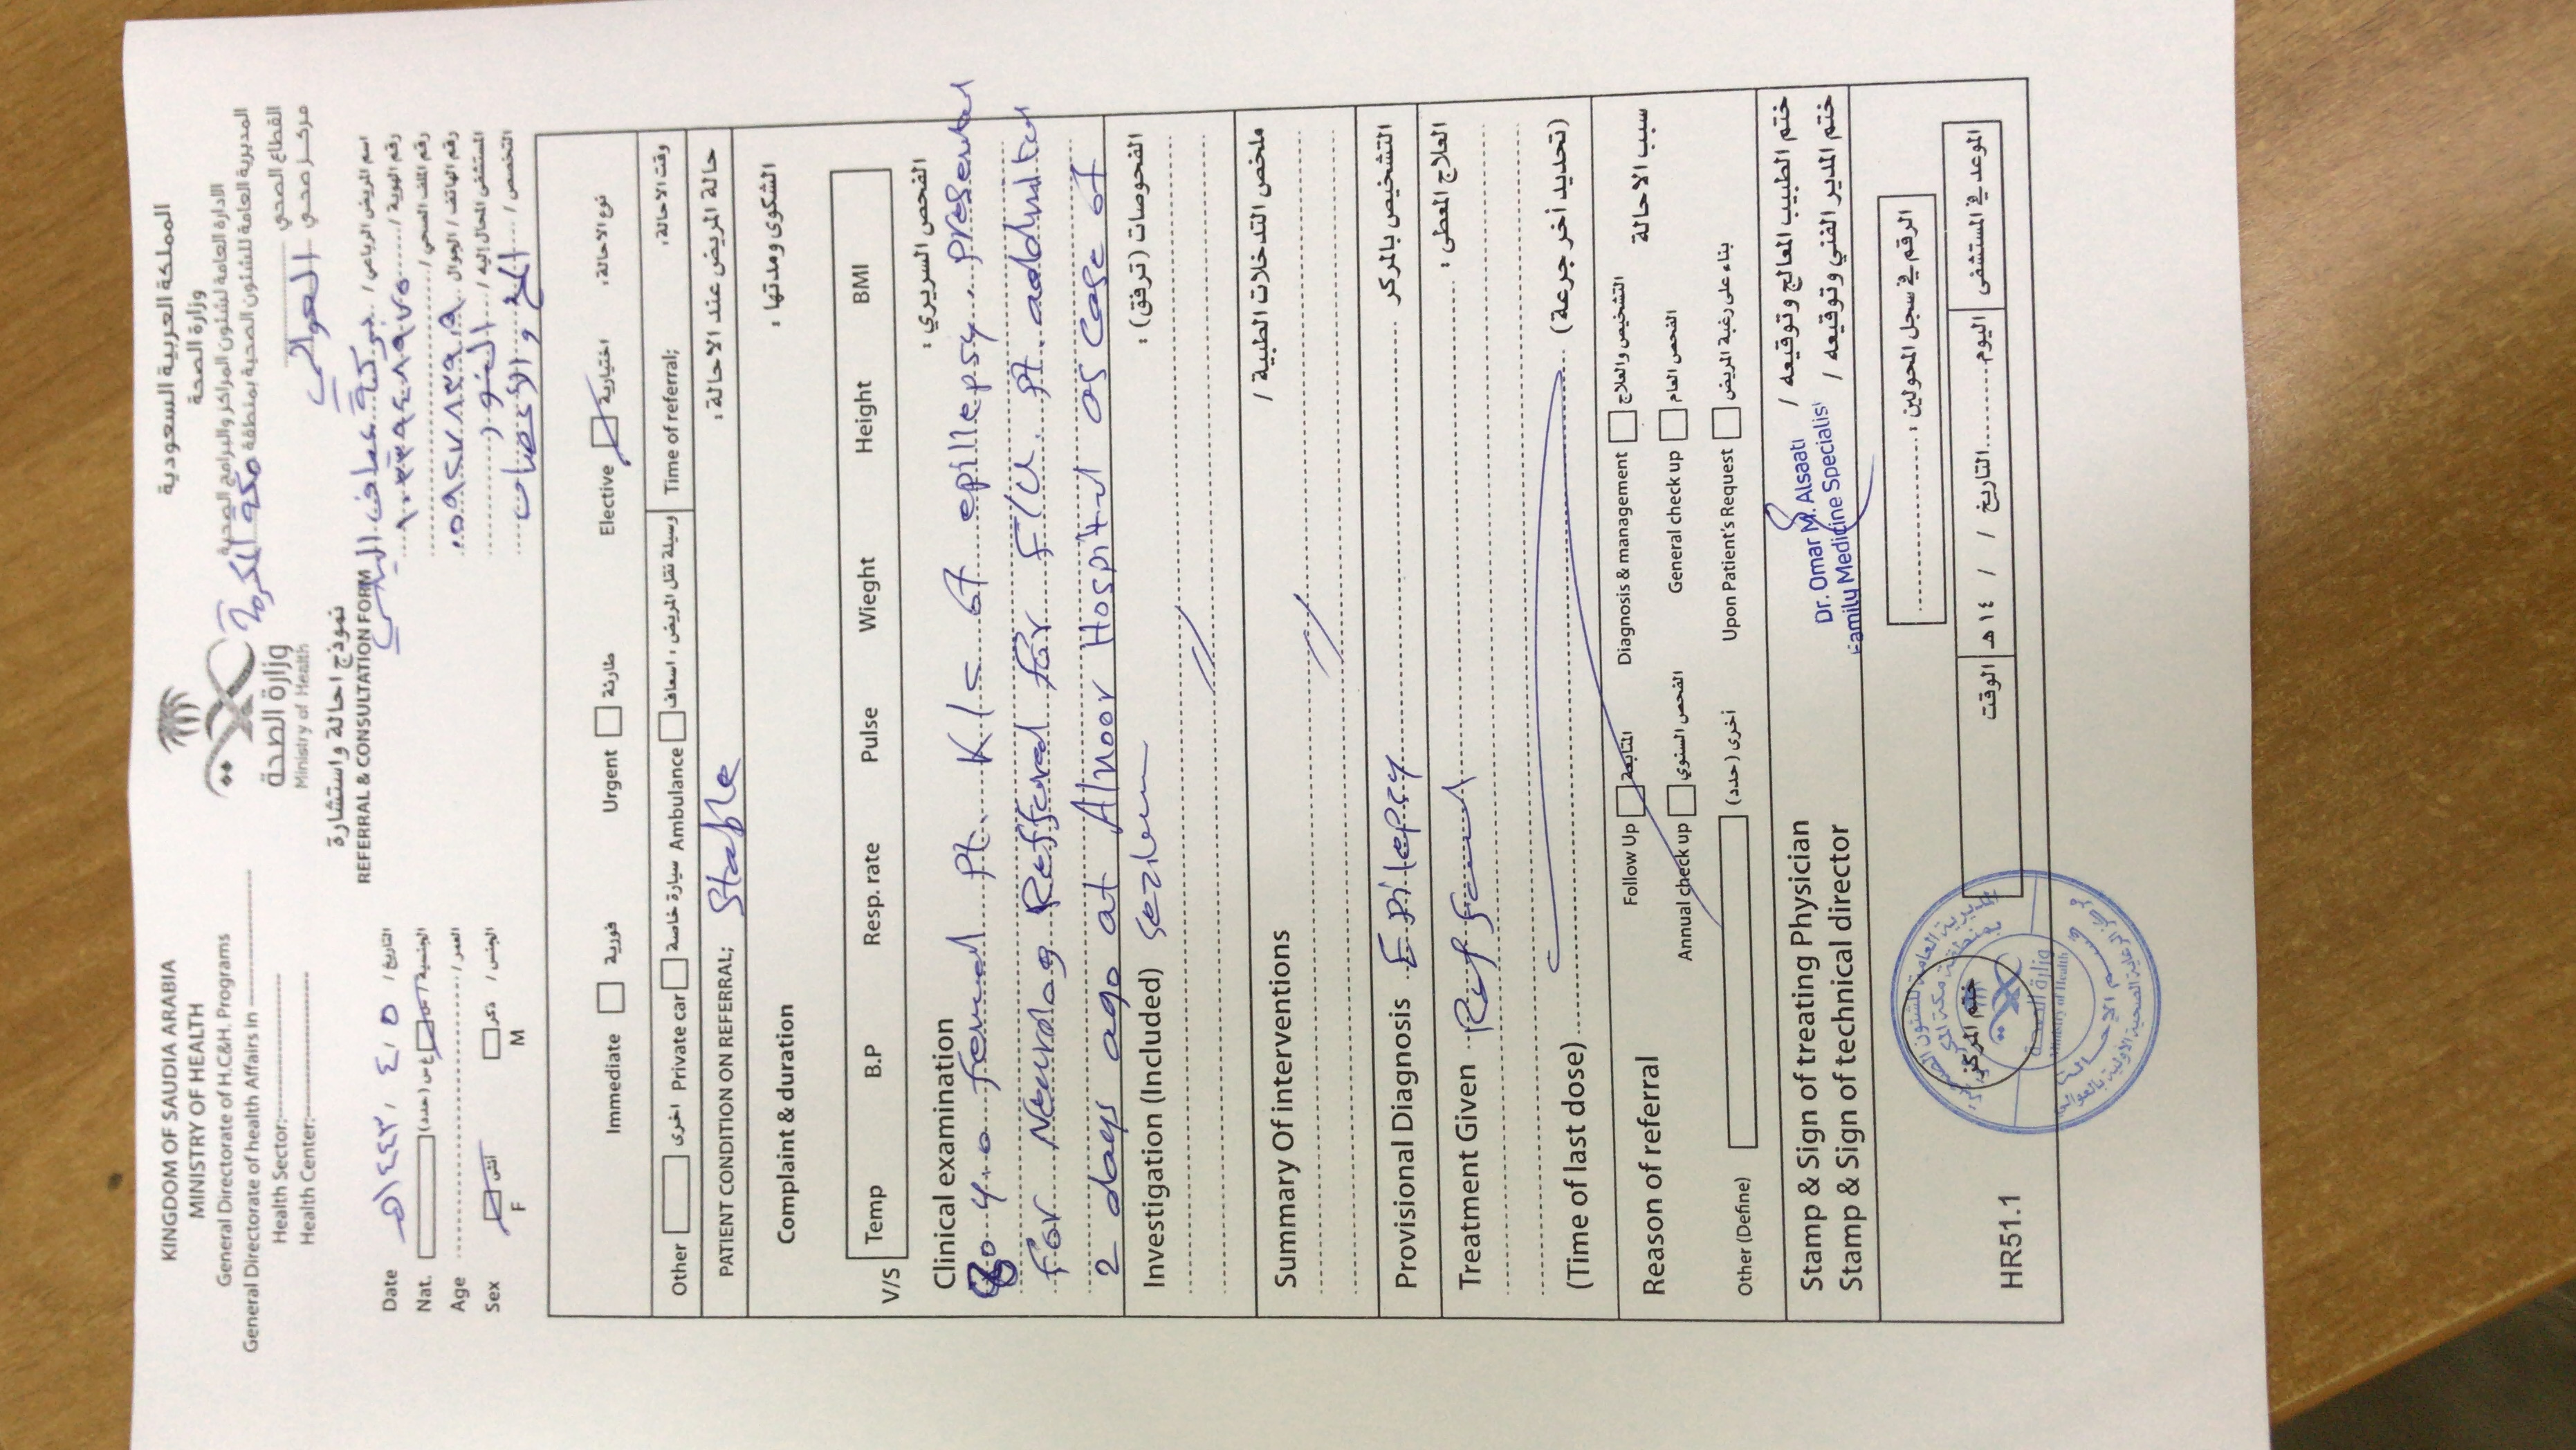 KINGDOM OF SAUDIA ARABIA
MINISTRY OF HEALTH
General Directorate of H.C&H. Programs
General Directorate of health Affairs in
Health Sector:
Health Center:
وزارة الصحة
Ministry of Health
المملكة العربية السعودية
وزارة الصحة
الادارة العامة لشئون المراكز والبرامج الصحية
المديرية العامة للشئون الصحية بمنطقة مكة المكرمة
القطاع الصحي
مركز صحي العوالي
نموذج احالة واستشارة
REFERRAL & CONSULTATION FORM
اسم المريض الرباعي / بركة عياف
رقم الهوية / ١٠٣٣٩٤٨٩٧٥
رقم الملف الصحي /
رقم الهاتف / الجوال ٠٥٩٤٧٨٣٩٠٩
المستشفى المحال إليه / النور
التخصص / المخ والأعصاب
Date التاريخ / ٥ / ٤ / ١٤٤٣هـ
Nat. الجنسية / س غ س (حدد)
Age العمر /
Sex أنثى ذكر الجنس /
F M
Immediate فورية Urgent طارئة Elective اختيارية نوع الاحالة:
Other اخرى Private car سيارة خاصة Ambulance وسيلة نقل المريض: اسعاف Time of referral; وقت الاحالة:
PATIENT CONDITION ON REFERRAL; Stable حالة المريض عند الاحالة:
Complaint & duration الشكوى ومدتها:
V/S Temp B.P Resp. rate Pulse Wieght Height BMI
Clinical examination الفحص السريري:
80 y.o femal Pt. K/c of epillepsy. presented
for Neurolog Reffered for F/U. Pt. addmitted
2 days ago at Alnoor Hospital as case of
Investigation (Included) الفحوصات (ترفق):
Summary Of interventions ملخص التدخلات الطبية /
Provisional Diagnosis Epilepsy التشخيص بالمركز
Treatment Given العلاج المعطى:
(Time of last dose) (تحديد أخر جرعة)
Reason of referral Follow Up المتابعة Diagnosis & management التشخيص والعلاج سبب الاحالة
Annual check up الفحص السنوي General check up الفحص العام
Other (Define) أخرى (حدد) Upon Patient's Request بناء على رغبة المريض
Stamp & Sign of treating Physician ختم الطبيب المعالج وتوقيعه /
Stamp & Sign of technical director ختم المدير الفني وتوقيعه /
Dr. Omar M. Alsaati
Family Medicine Specialist
الرقم في سجل المحولين:
الموعد في المستشفى اليوم التاريخ / / ١٤هـ الوقت
HR51.1
ختم المركز
المديرية العامة للشئون الصحية
بمنطقة مكة المكرمة
وزارة الصحة
Ministry of Health
قسم الإحالات
مركز الرعاية الصحية الأولية بالعوالي